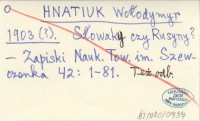 HNATIUK Wołodymyr
1903 (3). Słowaky czy Rusyny?
– Zapiski Nauk. Tow. im. Szew-
czenka 42: 1-81. Też odb.